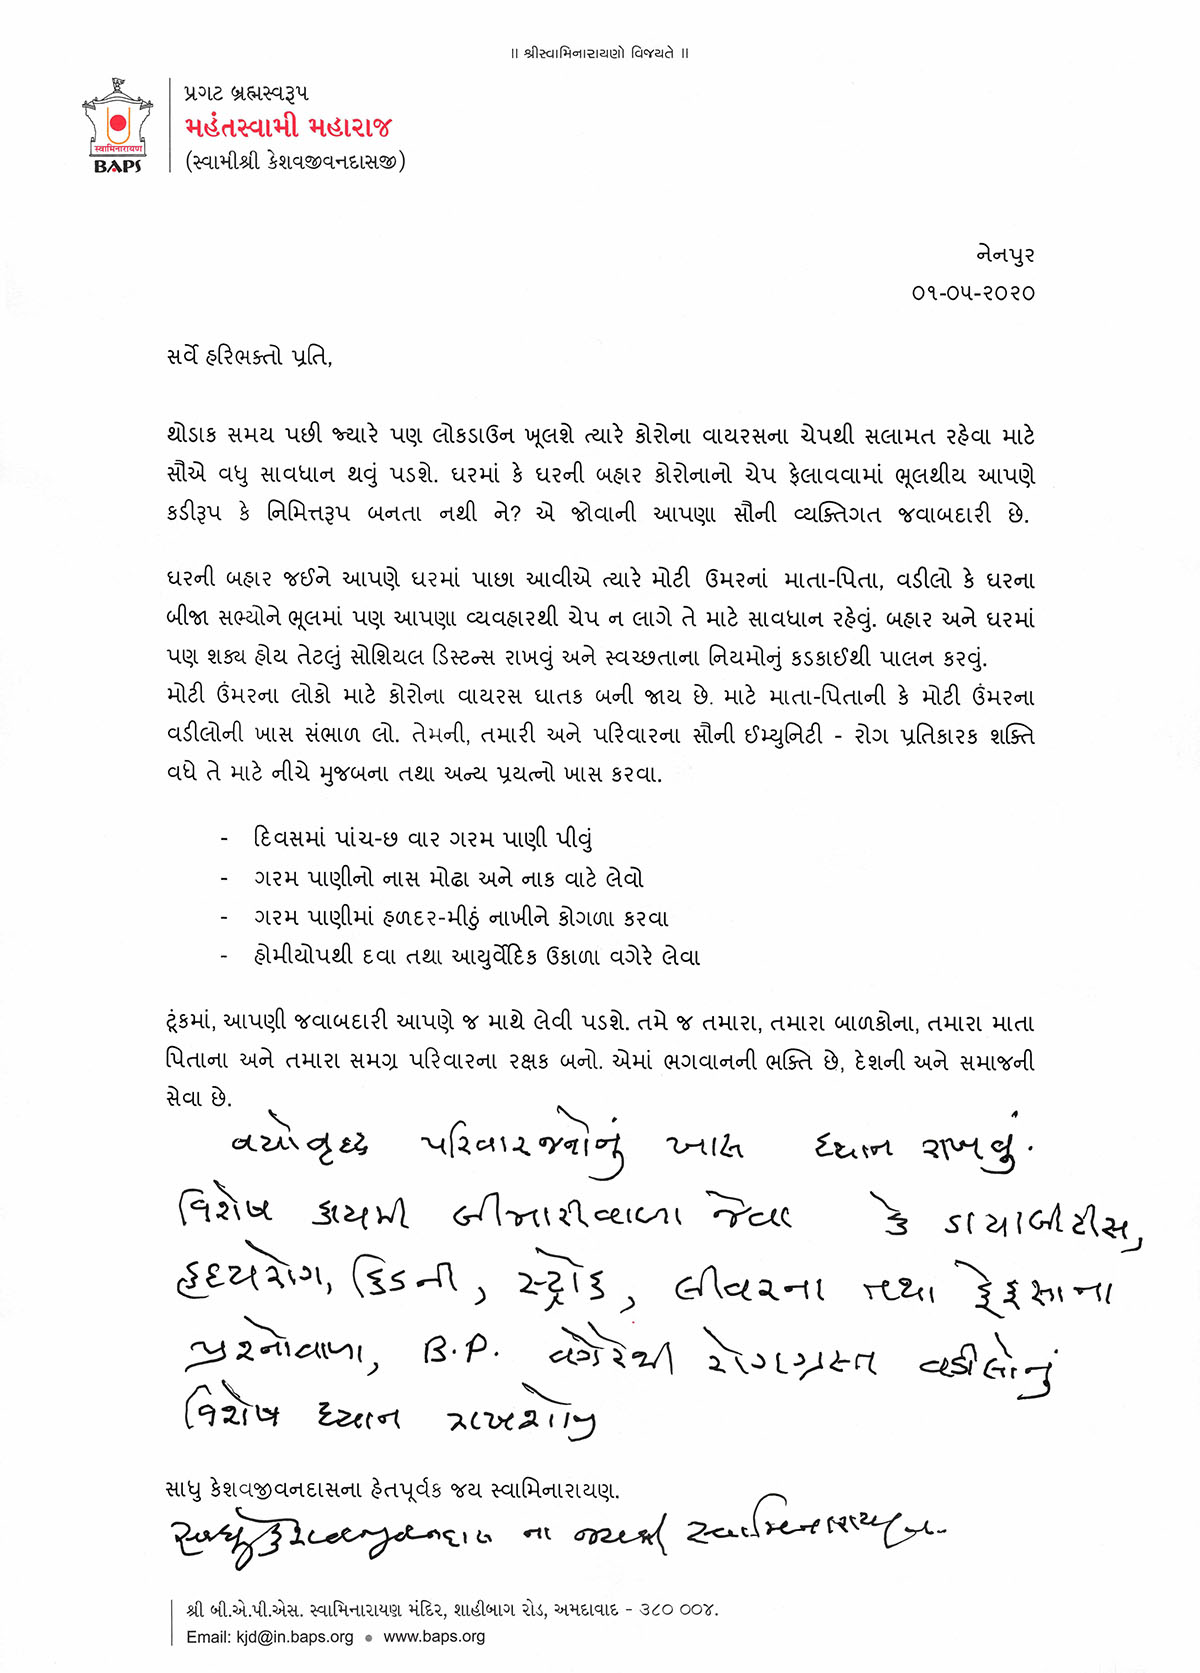 ॥ શ્રીસ્વામિનારાયણો વિજયતે ॥
પ્રગટ બ્રહ્મસ્વરૂપ
મહંતસ્વામી મહારાજ
(સ્વામીશ્રી કેશવજીવનદાસજી)
સ્વામિનારાયણ
BAPS
નેનપુર
૦૧-૦૫-૨૦૨૦
સર્વે હરિભક્તો પ્રતિ,
થોડાક સમય પછી જ્યારે પણ લોકડાઉન ખૂલશે ત્યારે કોરોના વાયરસના ચેપથી સલામત રહેવા માટે
સૌએ વધુ સાવધાન થવું પડશે. ઘરમાં કે ઘરની બહાર કોરોનાનો ચેપ ફેલાવવામાં ભૂલથીય આપણે
કડીરૂપ કે નિમિત્તરૂપ બનતા નથી ને? એ જોવાની આપણા સૌની વ્યક્તિગત જવાબદારી છે.
ઘરની બહાર જઈને આપણે ઘરમાં પાછા આવીએ ત્યારે મોટી ઉમરનાં માતા-પિતા, વડીલો કે ઘરના
બીજા સભ્યોને ભૂલમાં પણ આપણા વ્યવહારથી ચેપ ન લાગે તે માટે સાવધાન રહેવું. બહાર અને ઘરમાં
પણ શક્ય હોય તેટલું સોશિયલ ડિસ્ટન્સ રાખવું અને સ્વચ્છતાના નિયમોનું કડકાઈથી પાલન કરવું.
મોટી ઉંમરના લોકો માટે કોરોના વાયરસ ઘાતક બની જાય છે. માટે માતા-પિતાની કે મોટી ઉંમરના
વડીલોની ખાસ સંભાળ લો. તેમની, તમારી અને પરિવારના સૌની ઈમ્યુનિટી - રોગ પ્રતિકારક શક્તિ
વધે તે માટે નીચે મુજબના તથા અન્ય પ્રયત્નો ખાસ કરવા.
- દિવસમાં પાંચ-છ વાર ગરમ પાણી પીવું
- ગરમ પાણીનો નાસ મોઢા અને નાક વાટે લેવો
- ગરમ પાણીમાં હળદર-મીઠું નાખીને કોગળા કરવા
- હોમીયોપથી દવા તથા આયુર્વેદિક ઉકાળા વગેરે લેવા
ટૂંકમાં, આપણી જવાબદારી આપણે જ માથે લેવી પડશે. તમે જ તમારા, તમારા બાળકોના, તમારા માતા
પિતાના અને તમારા સમગ્ર પરિવારના રક્ષક બનો. એમાં ભગવાનની ભક્તિ છે, દેશની અને સમાજની
સેવા છે.
વયોવૃદ્ધ પરિવારજનોનું ખાસ ધ્યાન રાખવું.
વિશેષ કાયમી બીમારીવાળા જેવા કે ડાયાબીટીસ,
હૃદયરોગ, કિડની, સ્ટ્રોક, લીવરના તથા ફેફસાના
પ્રશ્નોવાળા, B.P. વગેરેથી રોગગ્રસ્ત વડીલોનું
વિશેષ ધ્યાન રાખશોજી
સાધુ કેશવજીવનદાસના હેતપૂર્વક જય સ્વામિનારાયણ.
સાધુ કેશવજીવનદાસ ના જયશ્રી સ્વામિનારાયણ.
શ્રી બી.એ.પી.એસ. સ્વામિનારાયણ મંદિર, શાહીબાગ રોડ, અમદાવાદ - ૩૮૦ ૦૦૪.
Email: kjd@in.baps.org • www.baps.org